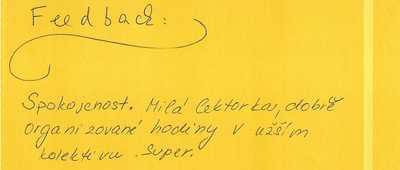 Feedback:
Spokojenost. Milá lektorka, dobře
organizované hodiny v užším
kolektivu. Super.